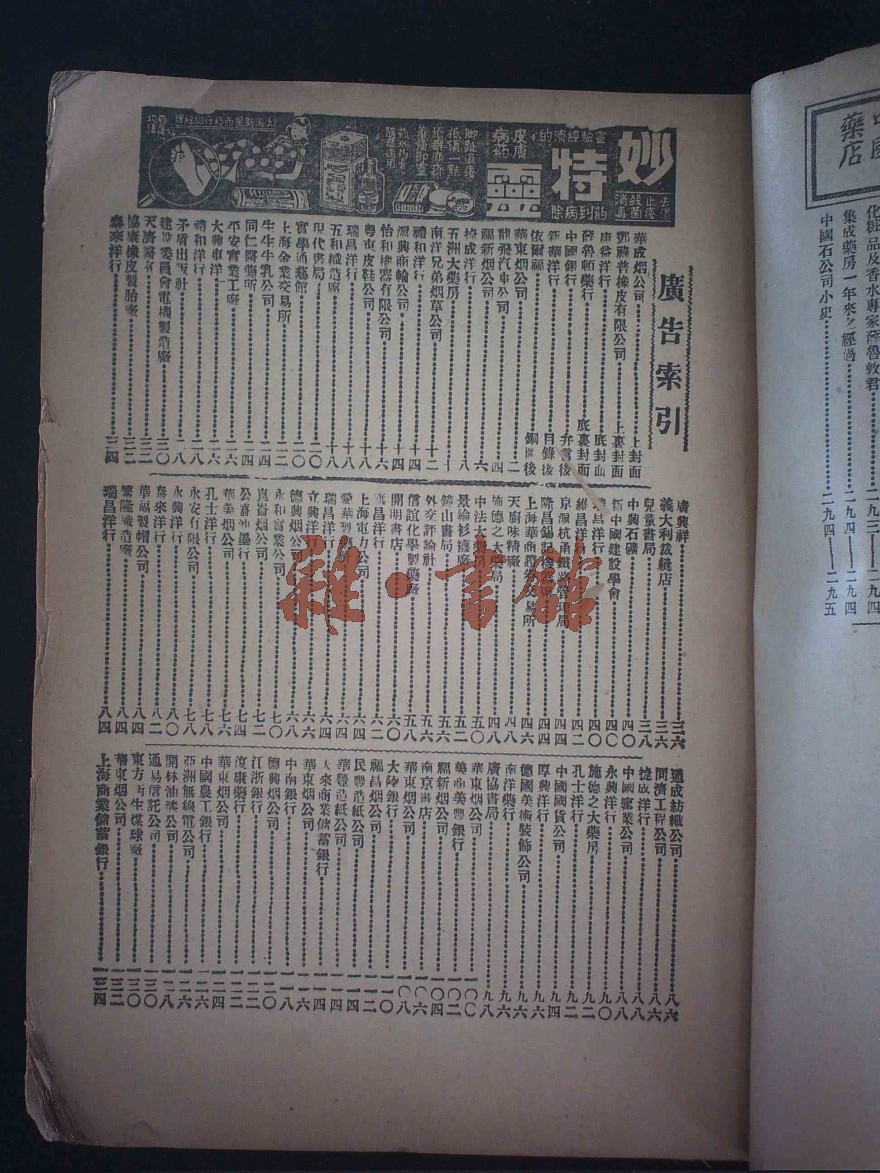 妙特靈
廣告索引
華成烟公司 上封面
鄧祿普橡皮有限公司 上裏封面
康益洋行 底封面
薛魯頓藥行 底裏封面
中國銀行 弁言後
新華洋行 目錄後
依爾福 銅圖後
華東烟公司 二
龍飛汽車公司 四
福新烟公司 六
捷成洋行 八
五洲大藥房 一〇
南洋兄弟烟草公司 一二
禮和洋行 一四
源興商輪公司 一四
怡和機器有限公司 一六
粵東皮鞋公司 一八
瑞昌洋行 一八
五和織造廠 一八
現代書局 二〇
實學通藝館 二〇
上海金業交易所 二二
生生牛乳公司 二四
同仁醫藥所 二四
平安實業工廠 二六
大興車洋 二六
禮和洋行 二八
矛盾出版社 二八
建設委員會電機製造廠 三〇
天濟醫室 三二
協康橡皮製胎廠 三二
泰來洋行 三四
廣興祥 三六
義大利裁縫店 三六
兒童書局 三八
中興石礦 四〇
新中國建設學會 四〇
瑞昌洋行 四〇
維昌洋行 四二
京滬杭甬鐵路管理局 四四
隆昌錫記
上海華商證券交易所
天廚味精廠 四八
施德之大藥房 四八
中法大藥房 五〇
景綸衫襪廠 五二
鍾山書局 五二
外交評論社 五六
信誼化學製藥廠 五八
開明書店 六〇
瑞昌洋行 六二
上海電力公司 六二
愛華製藥
瑞昌洋行 六四
立興洋行 六六
德興烟公司 六八
永和實業公司 七〇
崑崙烟公司 七二
公泰油墨行 七四
華美烟公司 七六
孔士洋行 七八
永安有限公司 七八
永興洋行 八〇
泰來洋行 八二
華福製帽公司 八四
繁隆織造廠 八四
瑞昌洋行 八四
通成紡織公司 八六
同濟工程公司 八六
捷成洋行 八八
中國窰業公司 八八
永興洋行 九〇
施德之大藥房 九二
孔士洋行 九二
中國國貨公司 九四
厚興洋行 九六
德國美術裝飾公司 九六
南洋藥行 九六
廣協書局 九八
華東烟公司 一〇〇
美商美豐銀行 一〇〇
福新烟公司 一〇四
南京書店 一〇六
華東烟公司 一〇八
大陸銀行 一一〇
福昌烟公司 一一二
民豐造紙公司 一一四
華豐造紙公司 一一四
大來商業儲蓄銀行 一一四
華東烟公司 一一六
中南銀行 一一六
德興烟公司 一一八
江浙銀行 一二〇
度康藥行 一二二
華東烟公司 一二四
中國農工銀行 一二六
亞洲無線電公司 一二六
開林油漆公司 一二八
通易信託公司 一三〇
東方再生煤球廠 一三〇
華東烟公司 一三二
上海商業儲蓄銀行 一三四
藥店
化粧品及香水專家薛魯敦君 二九三——二九四
集成藥房一年來之經過 二九四——二九四
中國石公司小史 二九四——二九五
雜·書館